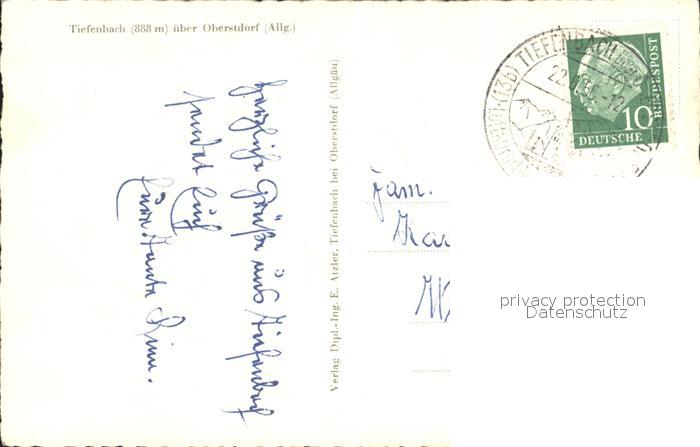 Tiefenbach (888 m) über Oberstdorf (Allg.)
Herzliche Grüße aus Tiefenbach
sendet Euch
Eure Tante
Verlag Dipl.-Ing. E. Atzler, Tiefenbach bei Oberstdorf (Allgäu)
(13b) TIEFENBACH
DEUTSCHE
BUNDESPOST
10
Fam.
privacy protection
Datenschutz